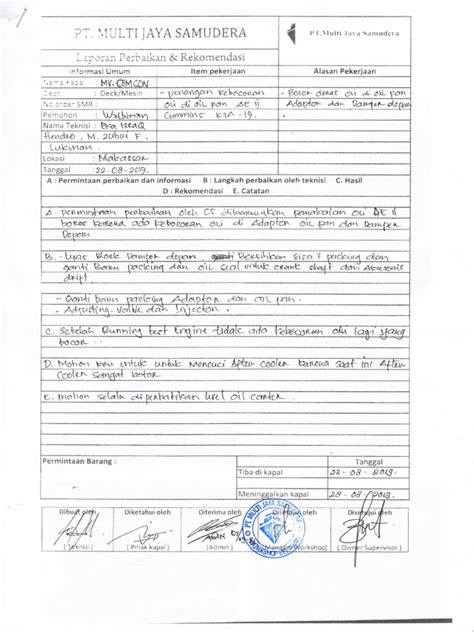 PT. MULTI JAYA SAMUDERA
PT.Multi Jaya Samudera
Laporan Perbaikan & Rekomendasi
Informasi Umum Item pekerjaan Alasan Pekerjaan
Nama Kapal : MV. CEMCON
Dept : Deck/Mesin - penangan kebocoran - Bocor dari oli di oil pan
No order SMR : oli di oil pan AE II Adaptor dan Damper depan
Pemohon : Cummins KTA-19.
Nama Teknisi : Era Israq
Hendro, M. Zuhri F.
Lukman.
Lokasi : Makassar
Tanggal : 22-08-2019.
A : Permintaan perbaikan dan informasi B : Langkah perbaikan oleh teknisi C. Hasil
D : Rekomendasi E. Catatan
A. permintaan perbaikan oleh pemakaian oli AE II
boros karena ada kebocoran oli di Adaptor oil pan dan Damper
Depan
B. - Luas Block Damper depan. Bersihkan sisa2 packing dan
ganti baru packing dan oil seal untuk crank shaft dan Aksesoris
drift.
- Ganti baru packing Adaptor dan oil pan.
- Adjusting Valve dan Injector.
C. Setelah Running test Engine tidak ada kebocoran oli lagi yang
bocor
D. Mohon untuk untuk Mencuci After cooler karena saat ini After
Cooler sangat kotor
E. mohon selalu diperhatikan level oil carter.
Permintaan Barang : Tanggal
Tiba di kapal 22-08-2019.
Meninggalkan kapal 28-08-2019.
Dibuat oleh Diketahui oleh Diterima oleh Disetujui oleh
( Teknisi ) ( Pihak kapal ) (Admin) Workshop) ( Owner Supervisor )
PT MULTI JAYA SAMUDERA